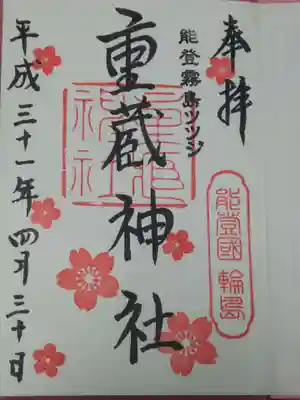 奉拝
能登國 輪島
能登霧島ツツジ
重蔵神社
平成三十一年四月三十日